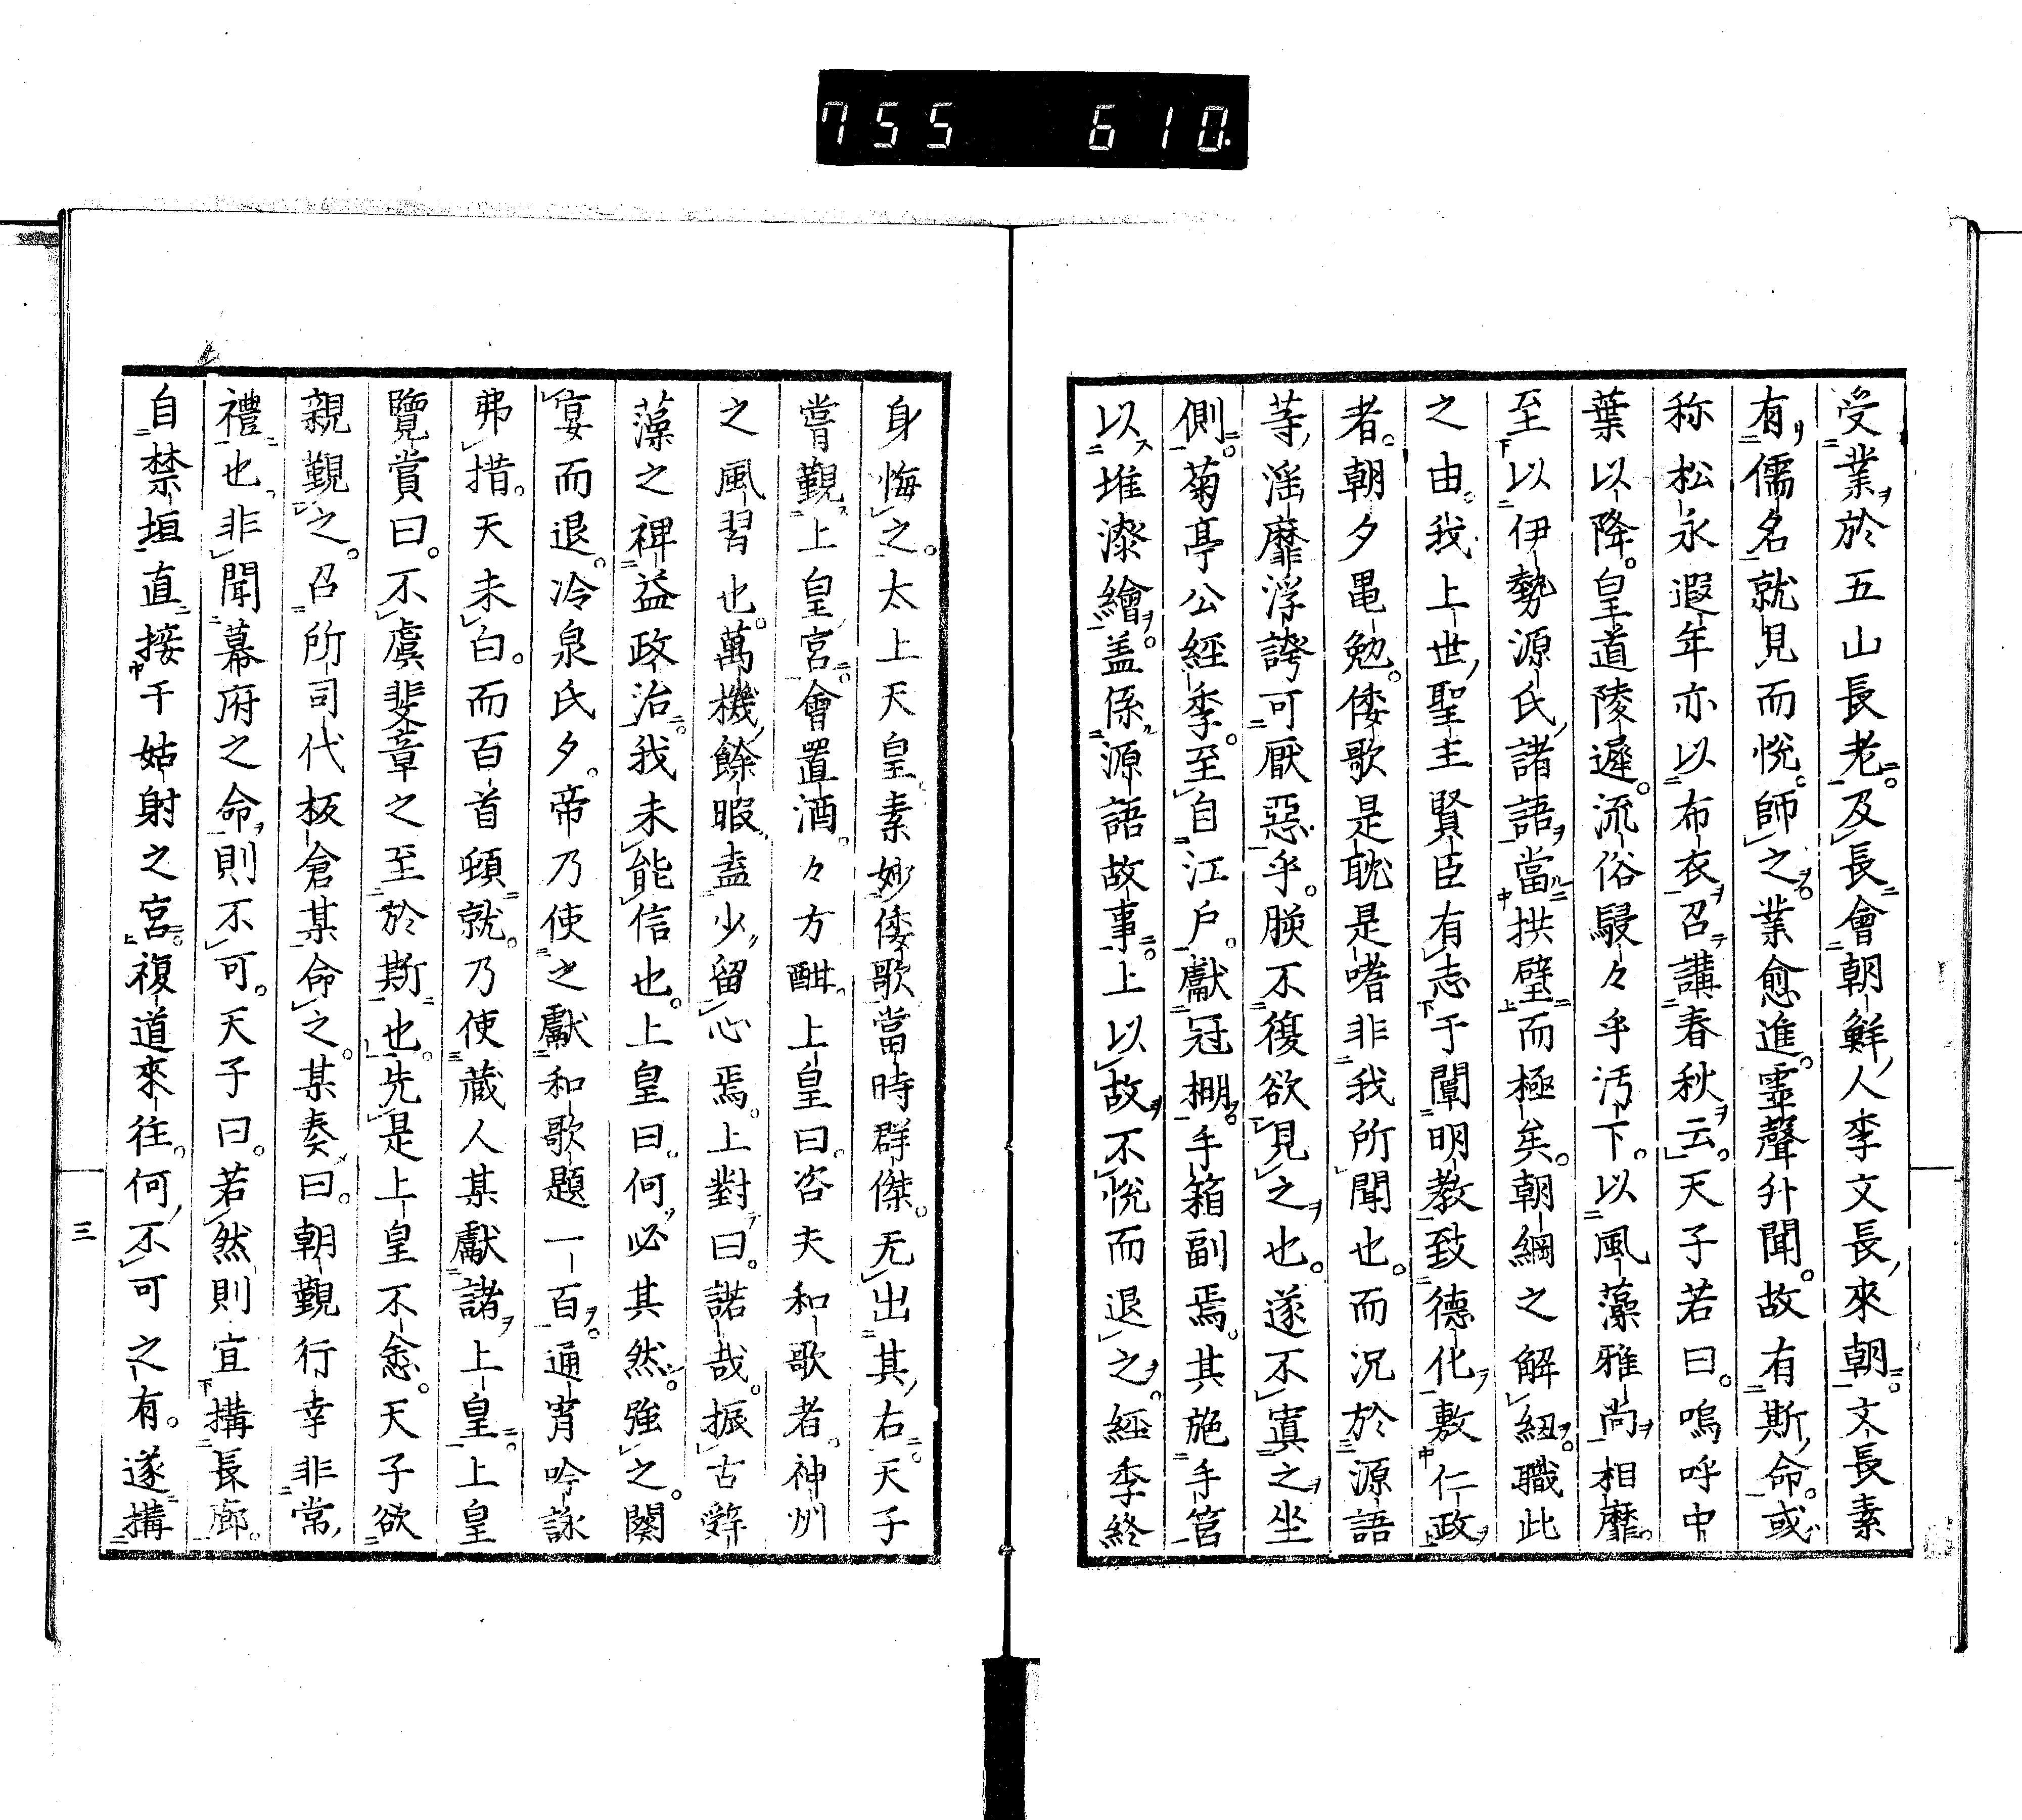 755 610.
受業ヲ於五山長老。及長會朝鮮人李文長來朝。文長素
有リ儒名就見而悦。師之ヲ。業愈進。霊聲升聞。故有斯命。或
称松永遐年亦以布衣ヲ召テ講春秋ヲ云。天子若曰。嗚呼中
葉以降。皇道陵遲。流俗駸々乎汚下。以風藻雅尚ヲ相靡。
至以伊勢源氏諸語ヲ當拱璧而極矣。朝綱之解紐ヲ。職此
之由。我上世聖主賢臣有志于闡明教致德化ヲ敷仁政ヲ
者。朝夕黽勉。倭歌是耽是嗜非我所聞也。而況於源語
等、淫靡浮誇可厭惡乎。朕不復欲見之ヲ也。遂不寘之ヲ坐
側。菊亭公經季。至自江戸。獻冠棚ヲ。手箱副焉。其施手筥
以ス堆漆繪ヲ。盖係源語故事。上以故ヲ不悦而退之ヲ。經季終
身悔之。太上天皇素妙倭歌當時群傑。无出其右。天子
嘗覲ス上皇宮。會置酒。々方酣。上皇曰。咨夫和歌者。神州
之風習也。萬機餘暇盍少留心焉。上對テ曰。諾哉。振古辤
藻之裨益政治。我未能信也。上皇曰。何必其然。強之。闋
宴而退。冷泉氏夕。帝乃使之獻和歌題一百ヲ。通宵吟詠
弗措。天未白。而百首頓就。乃使蔵人某獻諸上皇。上皇
覽賞曰。不虞斐章之至於斯也。先是上皇不悆。天子欲
親覲之。召所司代板倉某命之。某奏曰。朝覲行幸非常
禮也。非聞幕府之命ヲ則不可。天子曰。若然則宜搆長廊。
自禁垣直接于姑射之宮。複道來往。何不可之有。遂搆
三